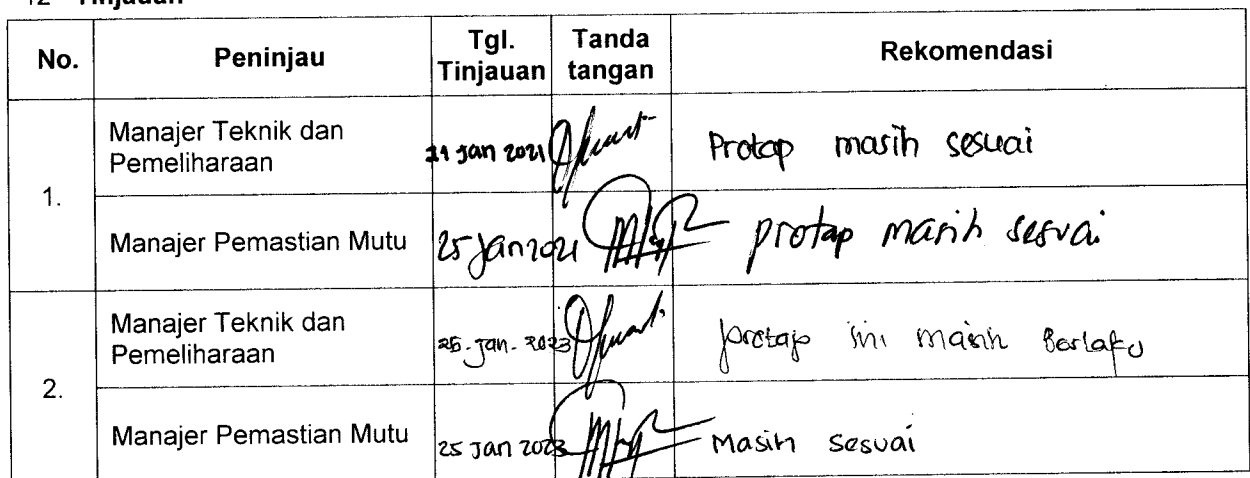 Tinjauan
No. Peninjau Tgl. Tinjauan Tanda tangan Rekomendasi
1.
Manajer Teknik dan Pemeliharaan 21 Jan 2021 Protap masih sesuai
Manajer Pemastian Mutu 25 Jan 2021 protap masih sesuai
2.
Manajer Teknik dan Pemeliharaan 25-Jan-2023 protap ini masih berlaku
Manajer Pemastian Mutu 25 Jan 2023 Masih sesuai